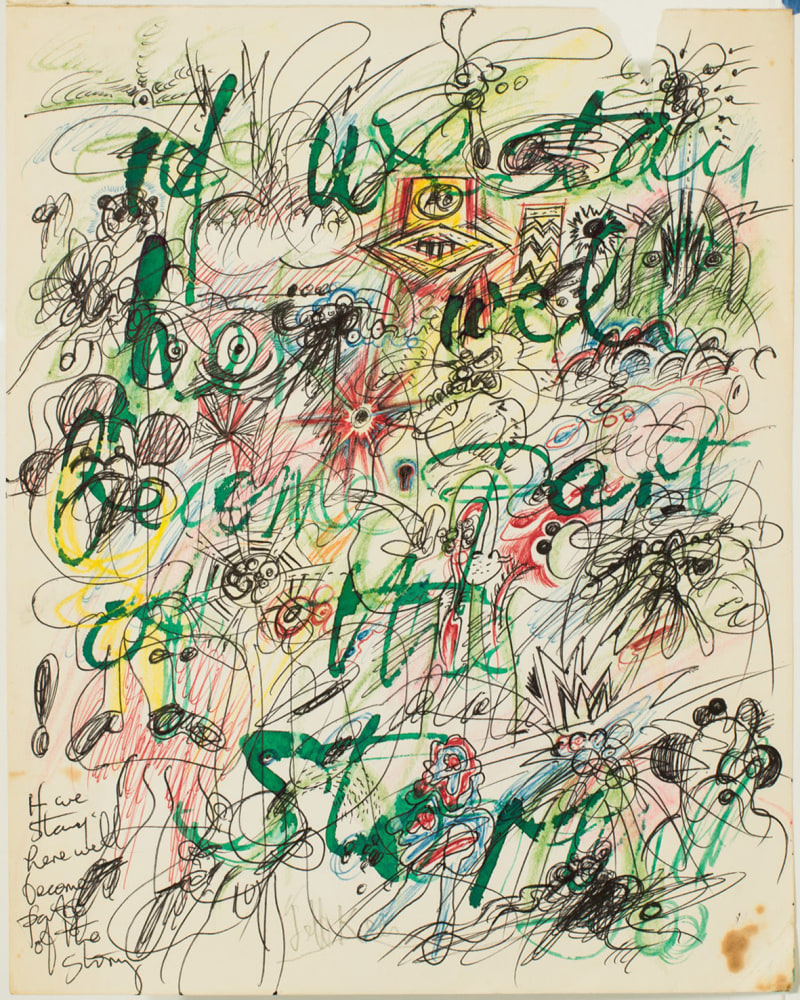 if we stay
here we'll
Become Part
of the
Story
If we
Stay
here we'll
become
part
of the
Story